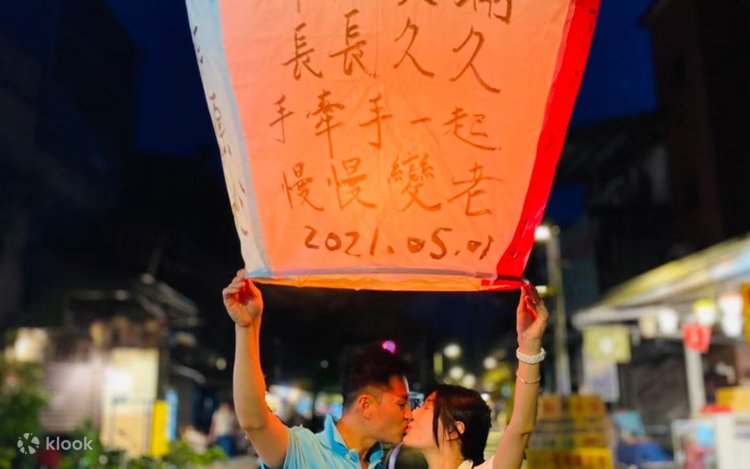 長長久久
手牽手一起
慢慢變老
2021.05.01
klook